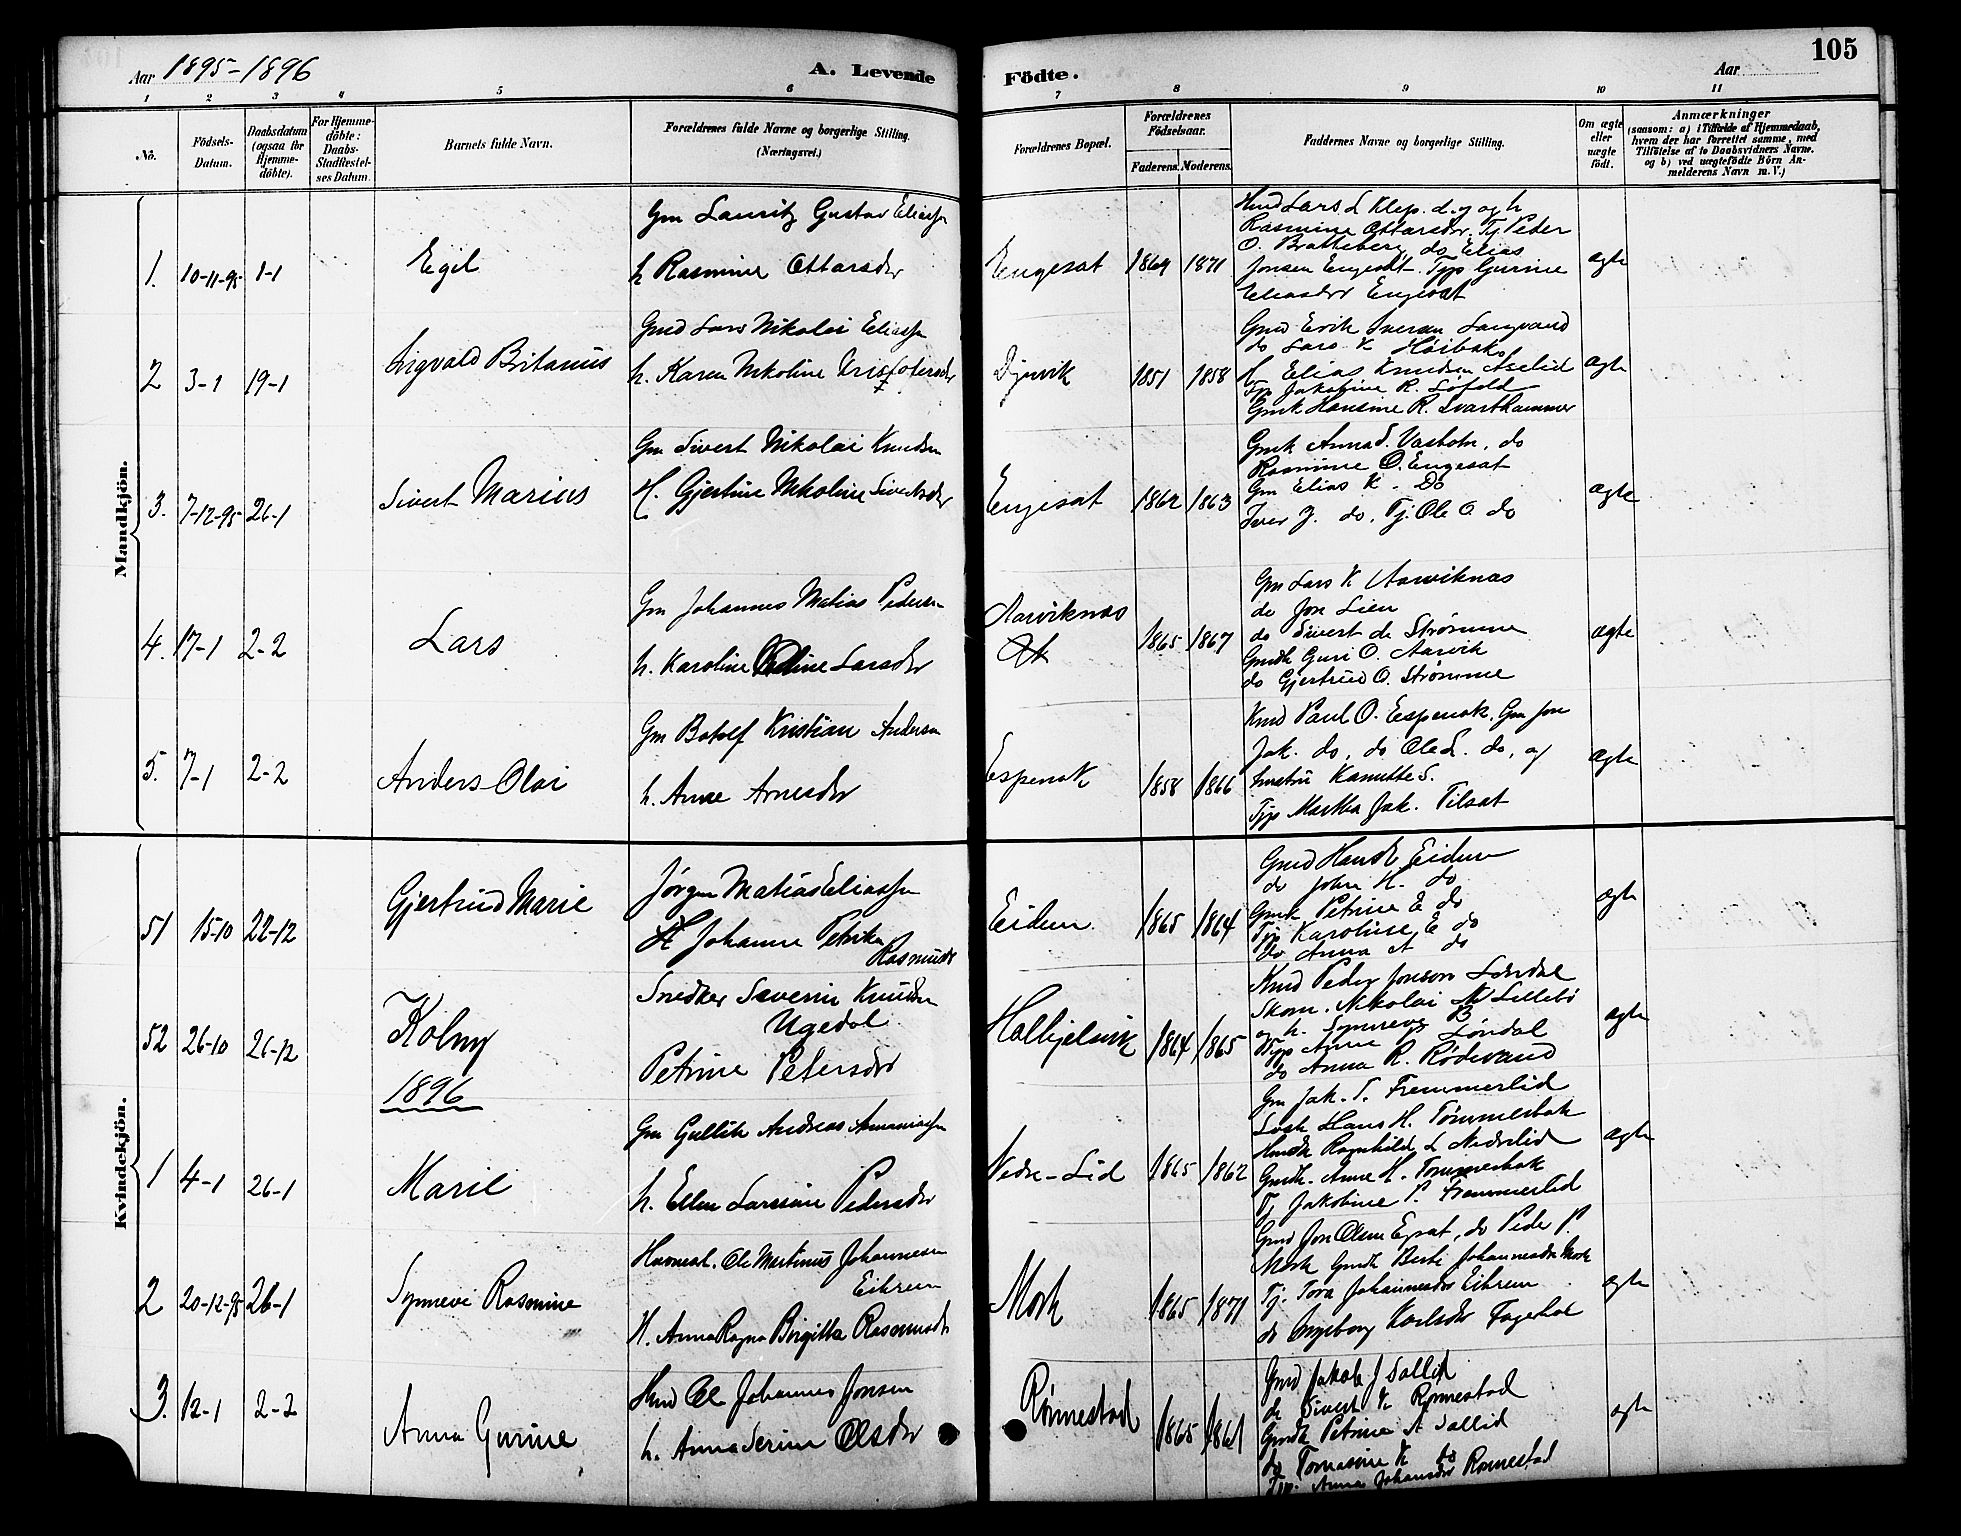 105
Aar 1895-1896
A. Levende
Födte.
Aar
1 2 3 4 5 6 7 8 9 10 11
No.
Födsels-
Datum.
Daabsdatum
(ogsaa for
Hjemme-
döbte).
For Hjemme-
döbte:
Daabs-
Stadfæstel-
ses Datum.
Barnets fulde Navn.
Forældrenes fulde Navne og borgerlige Stilling.
(Næringsvei.)
Forældrenes Bopæl.
Forældrenes
Födselsaar.
Faderens. Moderens.
Faddernes Navne og borgerlige Stilling.
Om ægte
eller
uægte
födt.
Anmærkninger
(saasom: a) i Tilfælde af Hjemmedaab,
hvem der har forrettet samme, med
Tilföielse af to Daabsvidners Navne.
og b) ved uægtefödte Börn An-
melderens Navn m. V.)
Mandkjön.
1. 10-11-95 1-1
Egil
Gm Lauritz Gustav Eliassn
h Rasmine Ottarsdr
Engesat 1869 1871
Lars L Klep. d. y og h
Rasmine Ottarsdr. Tj Peder
O. Bratteberg do Elias
Jonsen Engesat. Tjp Gurine
Eliasdr Engesat
ægte
2 3-1 19-1
Sigvald Britanus
Gmd Lars Nikolai Eliassn
h. Karen Nikoline Kristofersdr
Djuvik 1851 1858
Gmd Erik Iversen Langvand
do Lars K Høibak
Elias Knudsen Aselid
Tjp Jakobine R. Løfold
Gmk Hansine R. Svarthammer
ægte
3. 7-12-95 26-1
Sivert Marius
Gm Sivert Nikolai Knudsen
H. Gjertine Nikoline Sivertsdr
Engesat 1862 1863
Gmk Anna S. Vasbotn, do
Rasmine O. Engesat
Gm Elias K. Do
Iver J. do, Tj. Ole O. do
ægte
4. 17-1 2-2
Lars
Gm Johannes Matias Pedersen
h. Karoline Larsdr
Aarviknæs
1865 1867
Gm Lars K Aarviknæs
do Jon Lien
do Sivert do Strømme
Gmdk Guri O. Aarvik
do Gjertrud O. Strømme
ægte
5. 7-1 2-2
Anders Olai
Gm Botolf Kristian Andersen
h. Anne Arnesdr
Espenak 1858 1866
Paul O. Espenak, Gm Jon
Jak. do, do Ole L. do, og
Kanutte S.
Tjp Martha Jak. Tilsat
ægte
Kvindekjön.
51 15-10 22-12
Gjertrud Marie
Jørgen Matias Eliassn
H Johanne Petrika
Rasmusdr
Eidem. 1865 1864
Gmd Hans E Eidem
do John K. do
Gmk Petrine E do
Tjp Karoline E do
do Anna A do
ægte
52 26-10 26-12
Kolny
Snedker Severin Knudsen
Ugedal
Petrine Petersdr
Halkjelsvik 1864 1865
Peder Jonsen Løndal
Skom. Nikolai N Lillebø
og h. Synneve B
Tjp Anne Løndal
do Anna R. Rødsvand
ægte
1896
1 4-1 26-1
Marie
Gm Gullik Andreas Ananiassn
h. Ellen Larsine Pedersdr
Nedre-Lid 1865 1862
Gm Jak. P. Fremmerlid
Hans H. Tømmerbak
Ragnhild L Nedrelid
Gmdk. Anne H. Tømmerbak
Tj Jakobine P. Fremmerlid
ægte
2 20-12-95 26-1
Synneve Rasmine
Ole Martinus Johannesen
Eikrem
H. Anna Ragna Birgitta Rasmusdr
Mork 1865 1871
Gmd Jon Olsen Egsat, do Peder P.
Mork Gmdk Berte Johannesdr Mork
Tj. Tora Johannesdr Eikrem
do Ingeborg Karlsdr Fagerhol
ægte
3. 12-1 2-2
Anna Gurine
Ole Johannes Jonsen
h. Anna Serine Olsdr
Rønnestad 1865 1861
Gmd Jakob J Sallid
do Sivert K Rønnestad
Gmdk Petrine A Sallid
do Tomasine K do
Tjp. Anna Johansdr Rønnestad
ægte